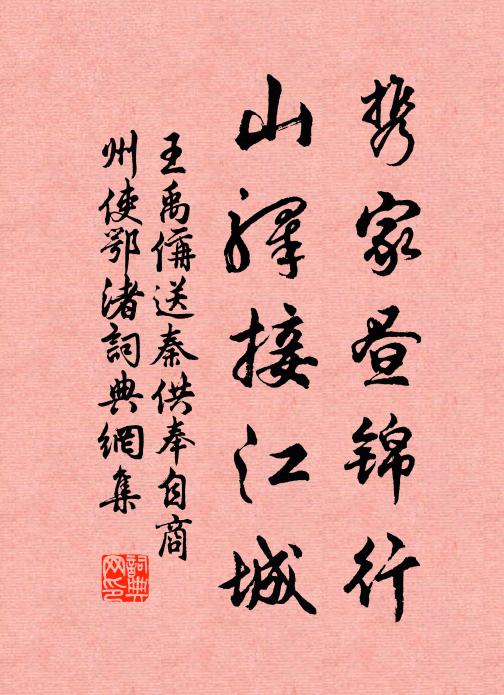 携家昼锦行
山驛接江城
王禹偁送秦供奉自商
州使鄂渚詞典網集
詞典网印